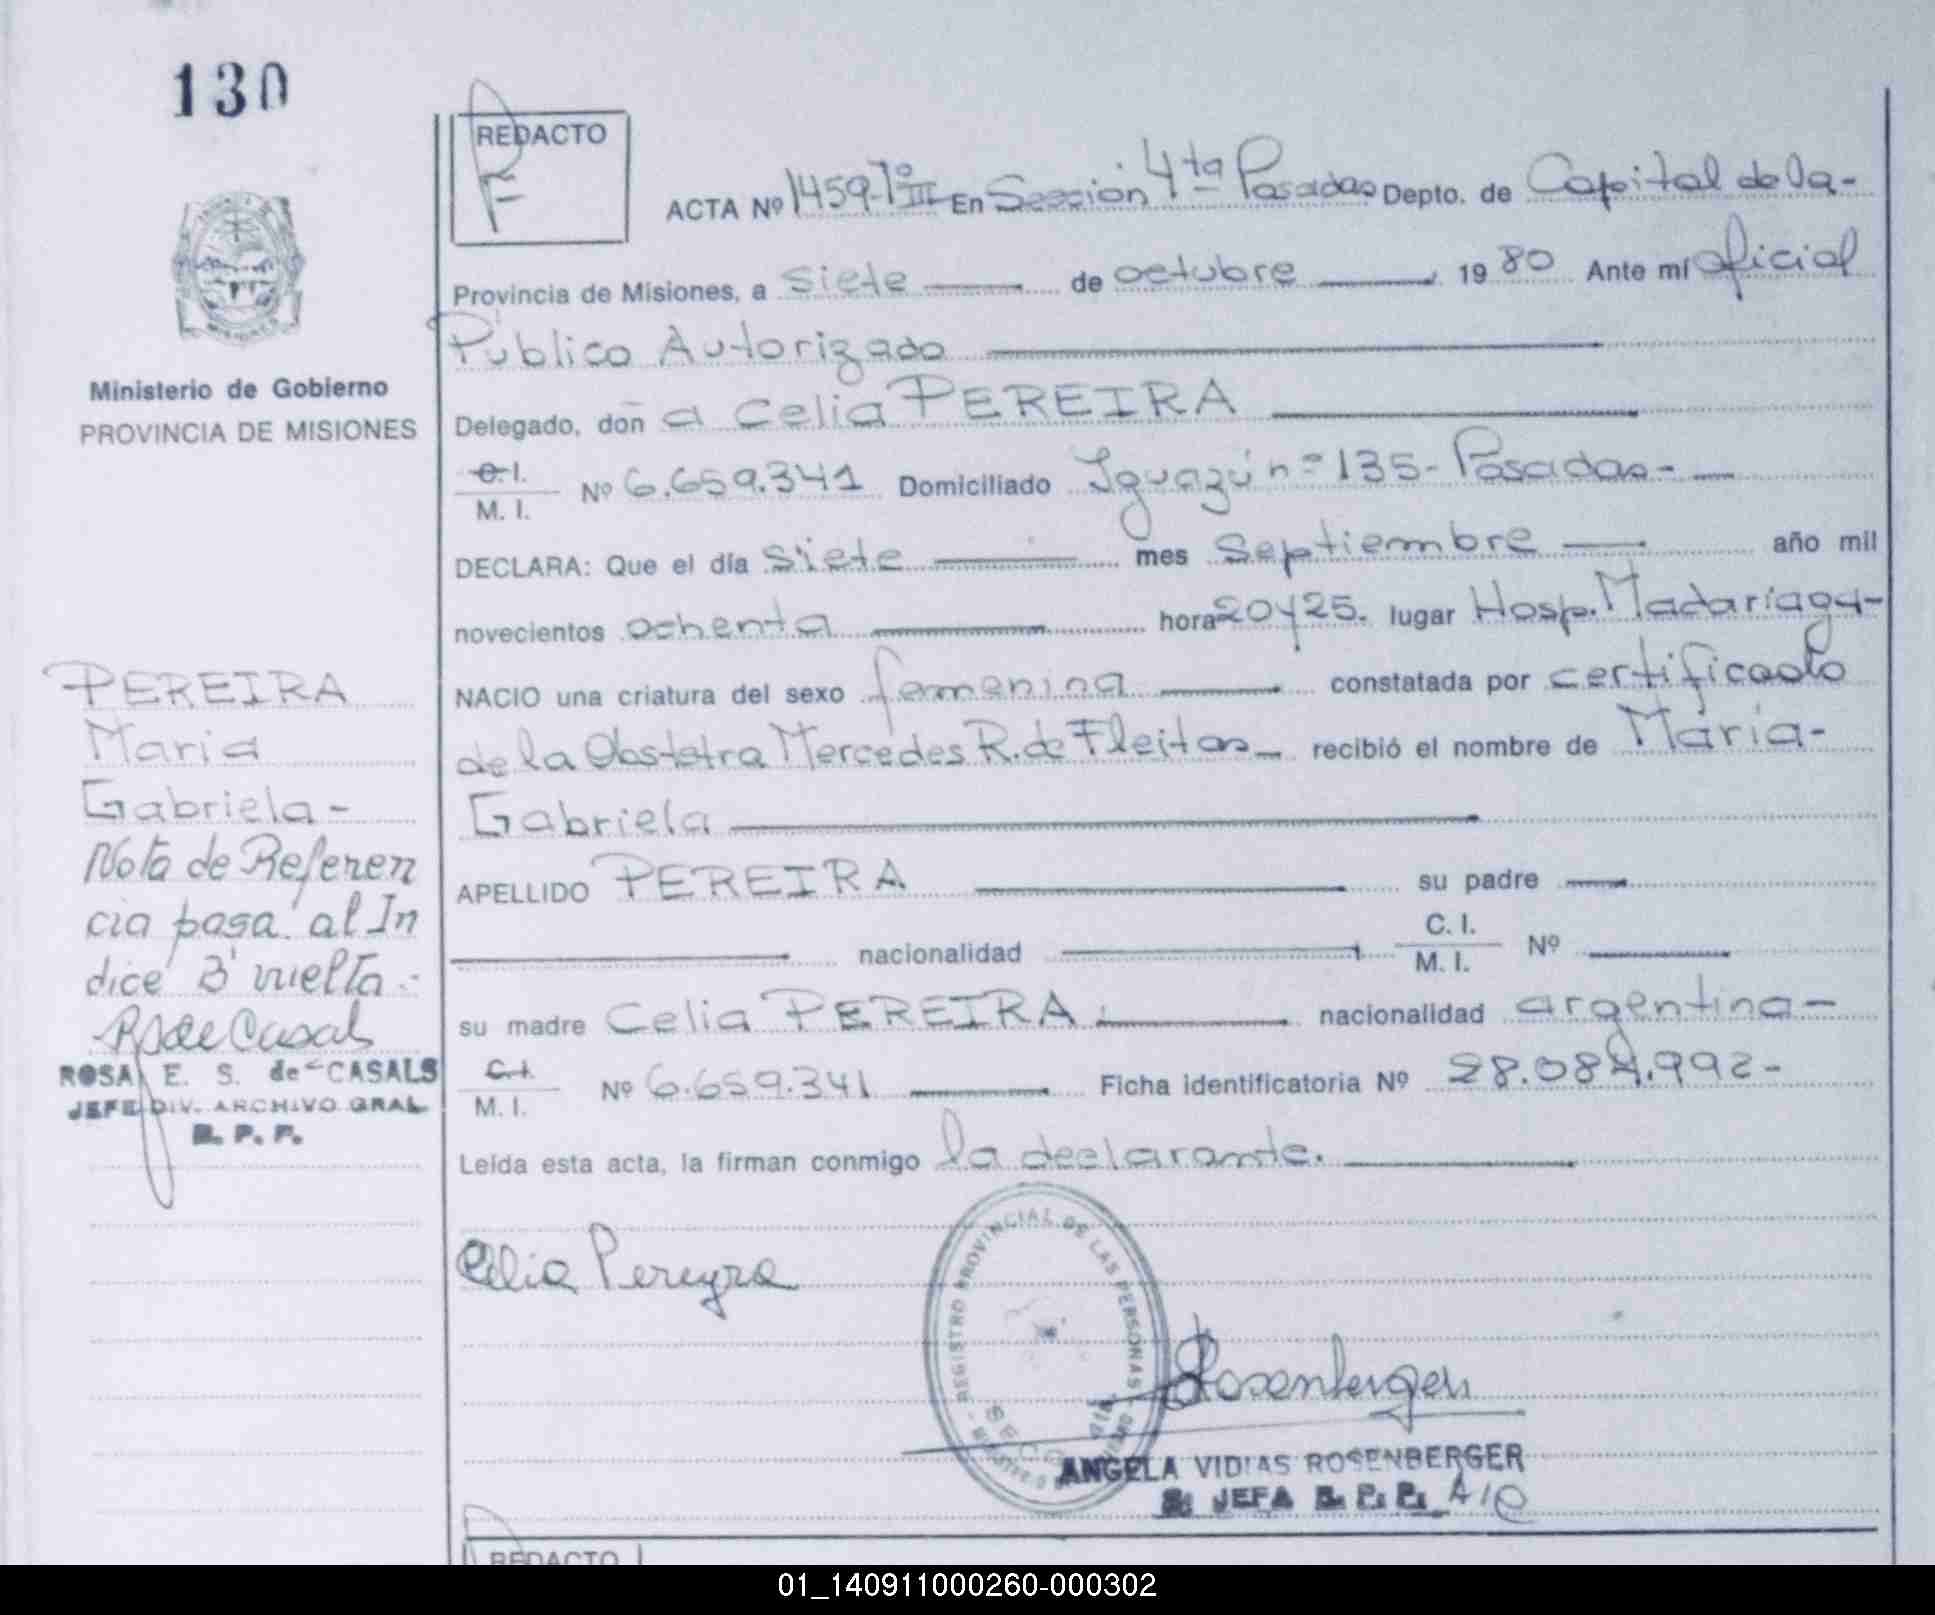 130
REDACTO
F
ACTA Nº 1459-Tº III En Sección 4ta Posadas Depto. de Capital de la-
Provincia de Misiones, a siete de octubre 19 80 Ante mí oficial
Público Autorizado
Delegado, don a Celia PEREIRA
C. I.
M. I. Nº 6.659.341 Domiciliado Iguazú nº 135- Posadas-
DECLARA: Que el día siete mes Septiembre año mil
novecientos ochenta hora 20 y 25. lugar Hosp. Madariaga-
NACIO una criatura del sexo femenina constatada por certificado
de la Obstetra Mercedes R. de Fleitas recibió el nombre de María-
Gabriela
APELLIDO PEREIRA su padre
nacionalidad C. I.
M. I. Nº
su madre Celia PEREIRA nacionalidad argentina-
C. I.
M. I. Nº 6.659.341 Ficha identificatoria Nº 28.084.992-
Leída esta acta, la firman conmigo la declarante.
Celia Pereyra
REGISTRO PROVINCIAL DE LAS PERSONAS
Rosenberger
ANGELA VIDIAS ROSENBERGER
JEFA R. P. P. A/C
MISIONES
Ministerio de Gobierno
PROVINCIA DE MISIONES
PEREIRA
Maria
Gabriela-
Nota de Referen
cia pasa al In
dice 3 vuelta.-
de Casals
ROSA E. S. de CASALS
JEFE DIV. ARCHIVO GRAL
R. P. P.
REDACTO
01_140911000260-000302